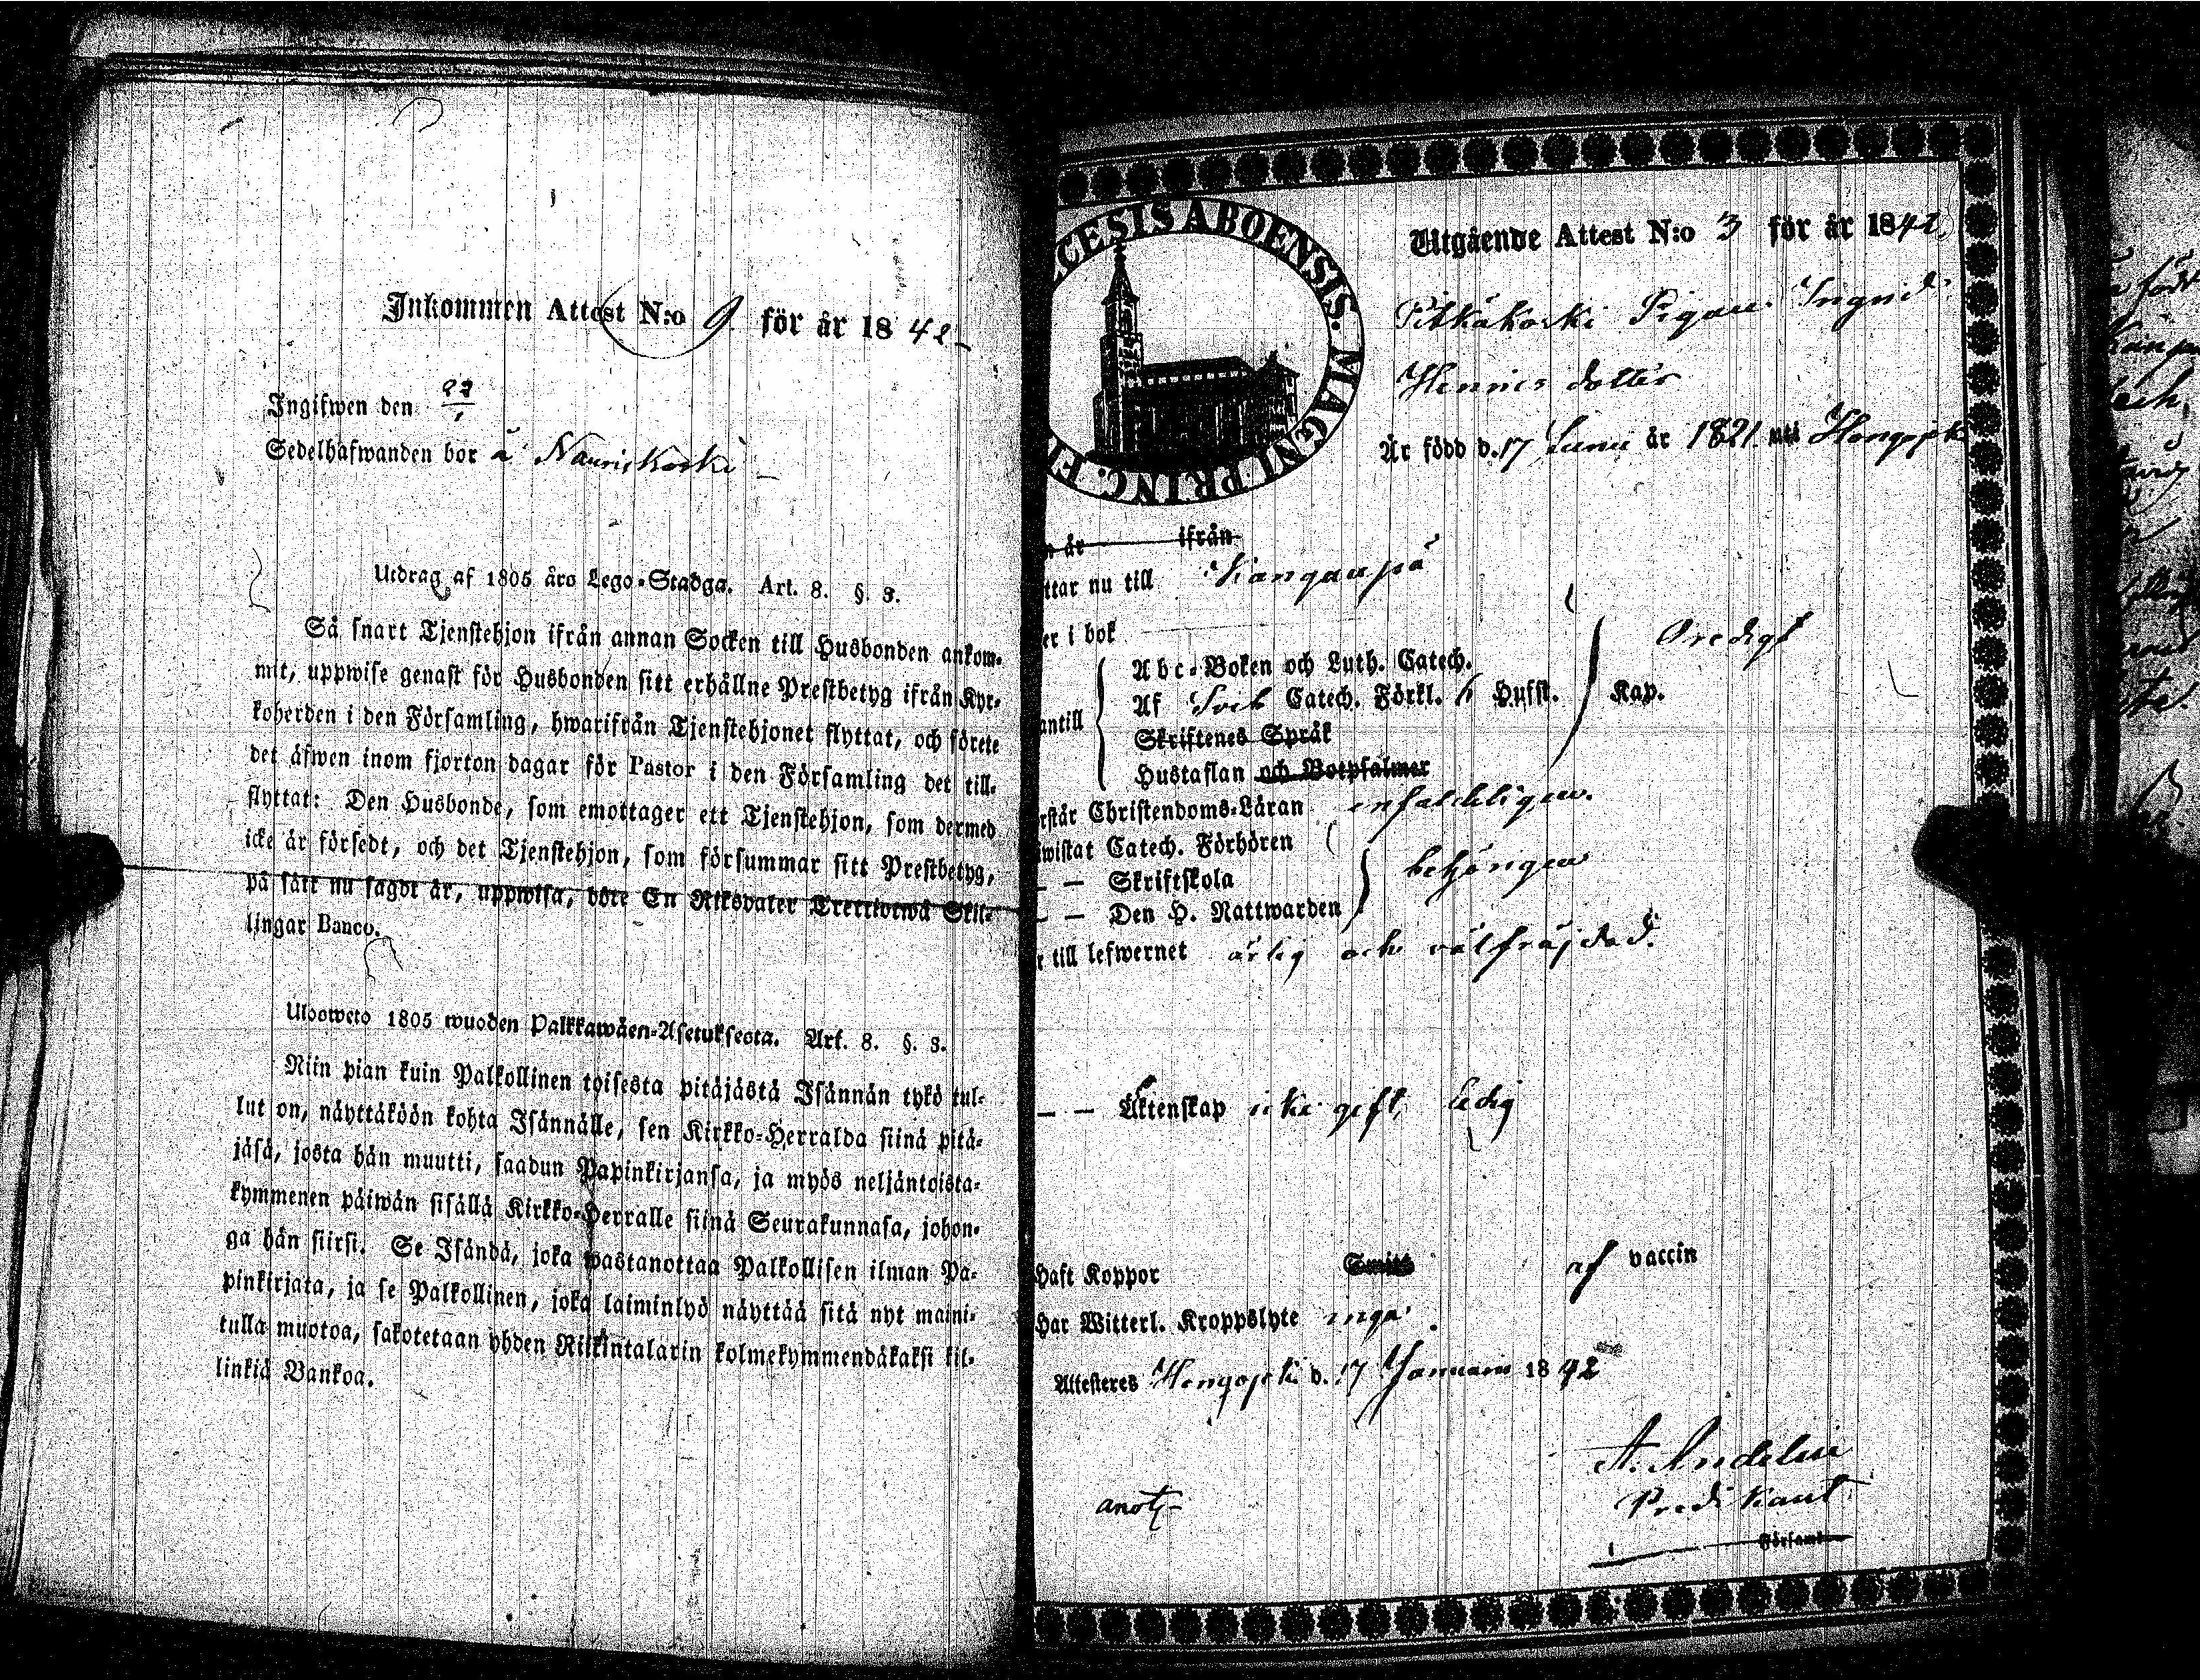 Inkommen Attest N:o 9 för år 1842
Ingifwen den 27/1
Sedelhafwanden bor å Nauriskoski
Utdrag af 1805 års Lego-Stadga. Art. 8. §. 3.
Så snart Tjenstehjon ifrån annan Socken till Husbonden ankom-
mit, uppwise genast för Husbonden sitt erhållne Prestbetyg ifrån Kyr-
koherden i den Församling, hwarifrån Tjenstehjonet flyttat, och förete
det äfwen inom fjorton dagar för Pastor i den Församling det till-
flyttat: Den Husbonde, som emottager ett Tjenstehjon, som dermed
icke är försedt, och det Tjenstehjon, som försummar sitt Prestbetyg,
på sätt nu sagdt är, uppwisa, böte En Riksdaler Trettiotwå Skil-
lingar Banco.
Ulosweto 1805 wuoden Palkkawäen-Asetuksesta. Art. 8. §. 3.
Niin pian kuin Palkollinen toisesta pitäjästä Isännän tykö tul-
lut on, näyttäköön kohta Isännälle, sen Kirkko-Herralda siinä pitä-
jäsä, josta hän muutti, saadun Papinkirjansa, ja myös neljäntoista-
kymmenen päiwän sisällä Kirkko-Herralle siinä Seurakunnasa, johon-
ga hän siirsi. Se Isändä, joka wastanottaa Palkollisen ilman Pa-
pinkirjata, ja se Palkollinen, joka laiminlyö näyttää sitä nyt maini-
tulla muotoa, sakotetaan yhden Riikintalarin kolmekymmendäkaksi kil-
linkiä Bankoa.
CESIS ABOENSIS. MAGNI PRINC. FI
Utgående Attest N:o 3 för år 1842
Pitkäkoski Pigan Ingrid
Henrics dotter
Är född d. 17 Junii år 1821 uti Hongojoki
n år ifrån
ttar nu till Kanganpä
er i bok
Abc-Boken och Luth. Catech.
Af Sveb Catech. Förkl. 6 Hufst.
Kap.
antill
Skriftenes Språk
Hustaflan och Botpsalmer
rstår Christendoms-Läran enfaldeligen.
iwistat Catech. Förhören
— — Skriftskola behörigen
— — Den H. Nattwarden
r till lefwernet ärlig och välfräjdad.
— — Äktenskap icke gift, ledig
Haft Koppor af vaccin
Har Witterl. Kroppslyte inga.
Attesteres Hongojoki d. 17 Januarii 1842
A. Andelin
Predikant
anot
Församl